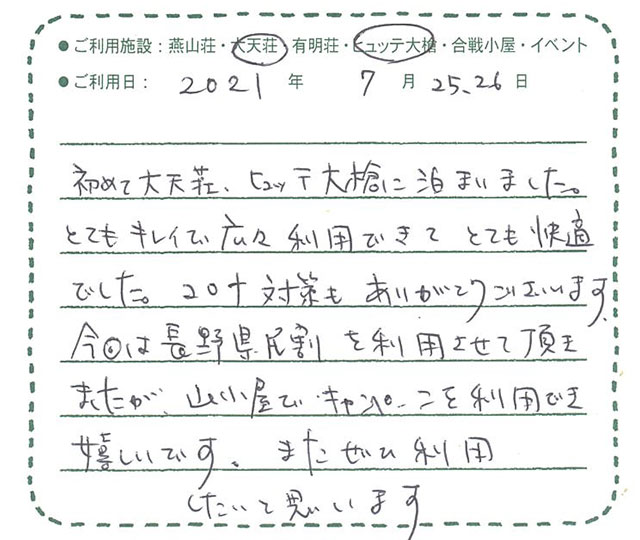 ●ご利用施設：燕山荘・大天荘・有明荘・ヒュッテ大槍・合戦小屋・イベント
●ご利用日： 2021 年 7 月 25.26 日
初めて大天荘、ヒュッテ大槍に泊まいました。
とてもキレイで広々利用できてとても快適
でした。コロナ対策もありがとうございます。
今回は長野県民割を利用させて頂き
ましたが、山小屋でキャンペーンを利用でき
嬉しいです。またぜひ利用
したいと思います